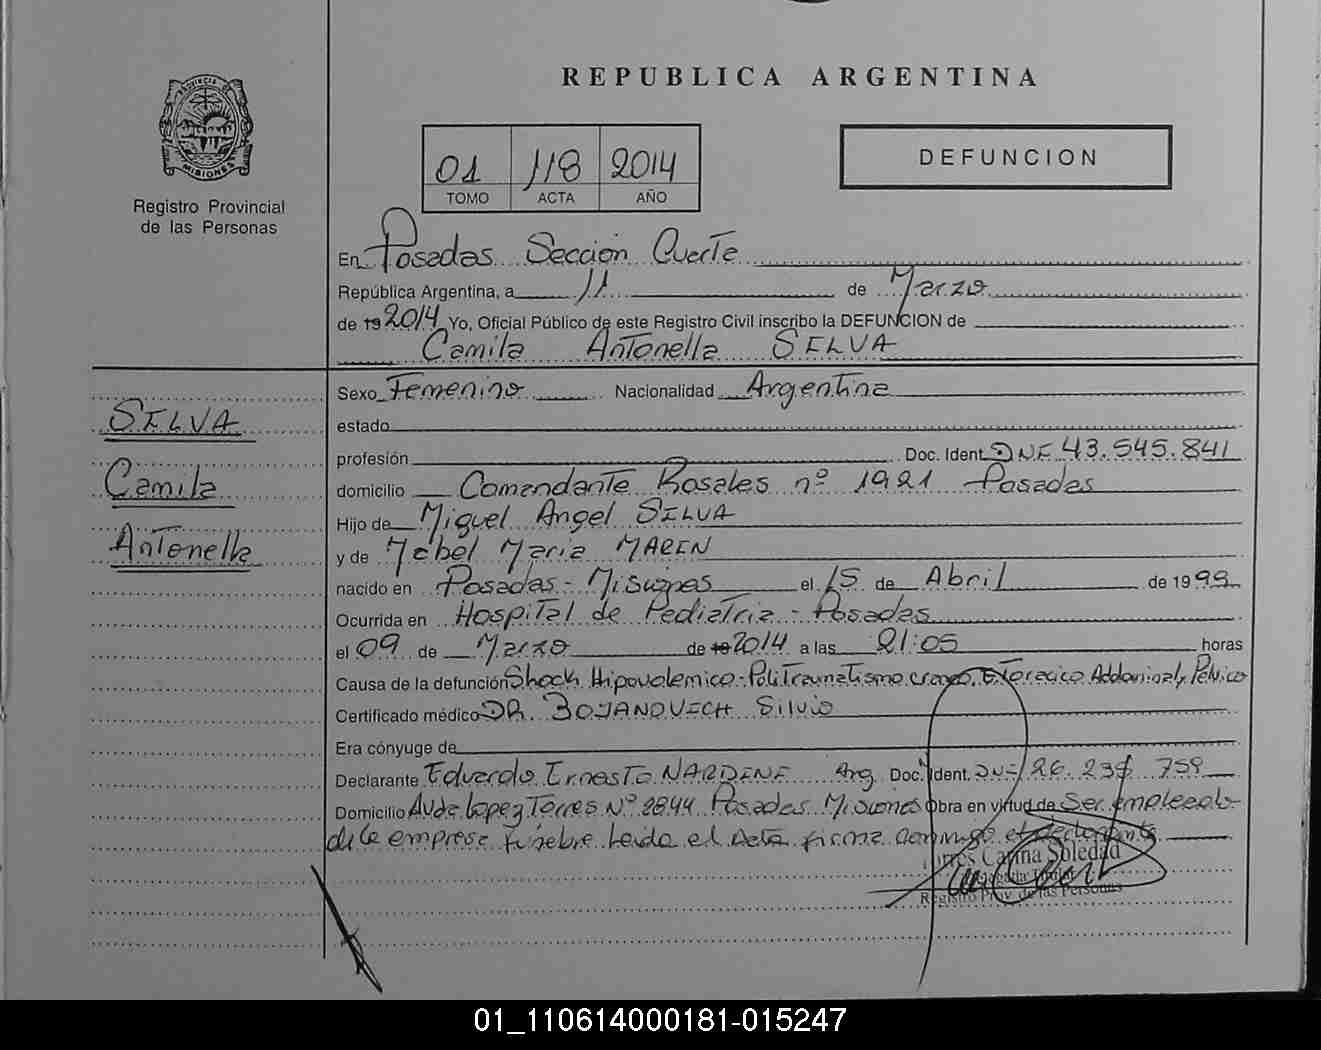 PROVINCIA DE
MISIONES
Registro Provincial
de las Personas
REPUBLICA ARGENTINA
01 118 2014
TOMO ACTA AÑO
DEFUNCION
En Posadas Sección Cuarta
República Argentina, a 11 de Marzo
de 19 2014 Yo, Oficial Público de este Registro Civil inscribo la DEFUNCION de
Camila Antonella SILVA
SILVA
Camila
Antonella
Sexo Femenino Nacionalidad Argentina
estado
profesión Doc. Ident. DNI 43.545.841
domicilio Comandante Rosales nº 1921 Posadas
Hijo de Miguel Angel SILVA
y de Mabel Maria MARIN
nacido en Posadas - Misiones el 15 de Abril de 1999
Ocurrida en Hospital de Pediatria - Posadas
el 09 de Marzo de 19 2014 a las 21:05 horas
Causa de la defunción Shock Hipovolemico - Politraumatismo craneo Toracico Abdominal y Pelvico
Certificado médico DR. BOJANOVICH Silvio
Era cónyuge de
Declarante Eduardo Ernesto NARDINI Arg. Doc. Ident. DNI 26.235 759
Domicilio Avda Lopez Torres Nº 2844 Posadas Misiones Obra en virtud de Ser empleado
de la empresa funebre Leida el Acta firma conmigo el declarante
Torres Carina Soledad
Delegada Titular
Registro Prov. de las Personas
01_110614000181-015247